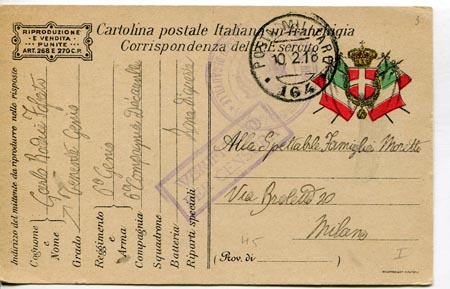 RIPRODUZIONE
E VENDITA
PUNITE
ART. 268 E 270 C. P.
Cartolina postale Italiana in Franchigia
Corrispondenza del R. Esercito
POSTA MILITARE
10.2.18
164
3
Indirizzo del mittente da riprodurre nelle risposte
Cognome
e
Nome
Grado Tenente Genio
Reggimento
e
Arma
6° Genio
Compagnia
Squadrone
Batteria
Riparti speciali
Zona di guerra
Alla Spettabile Famiglia
Via Broletto 20
Milano
(Prov. di )
I